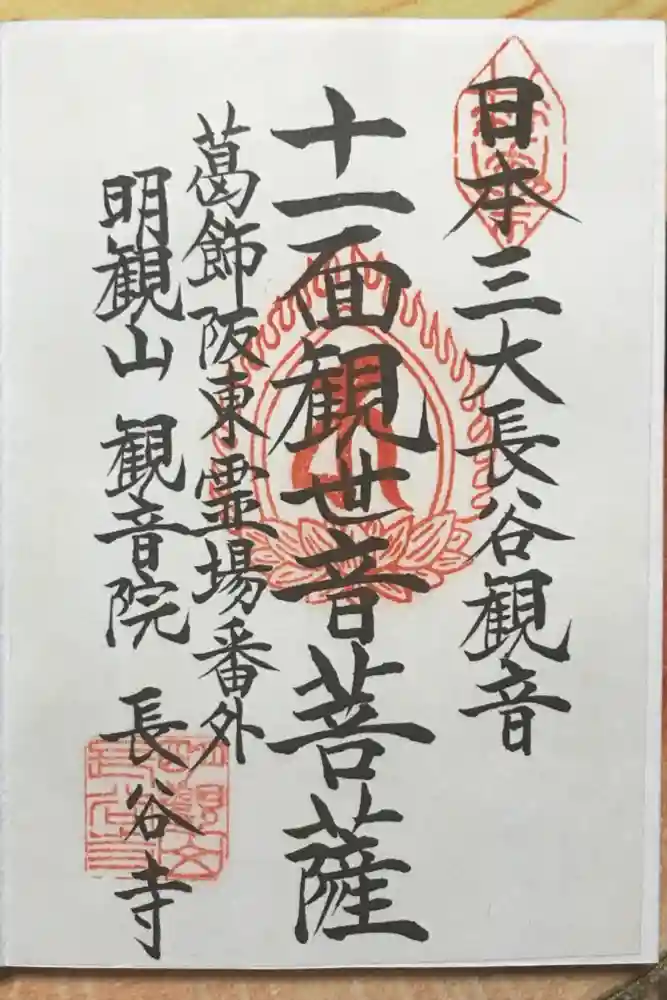 日本三大長谷観音
十一面観世音菩薩
葛飾阪東霊場番外
明観山 観音院 長谷寺